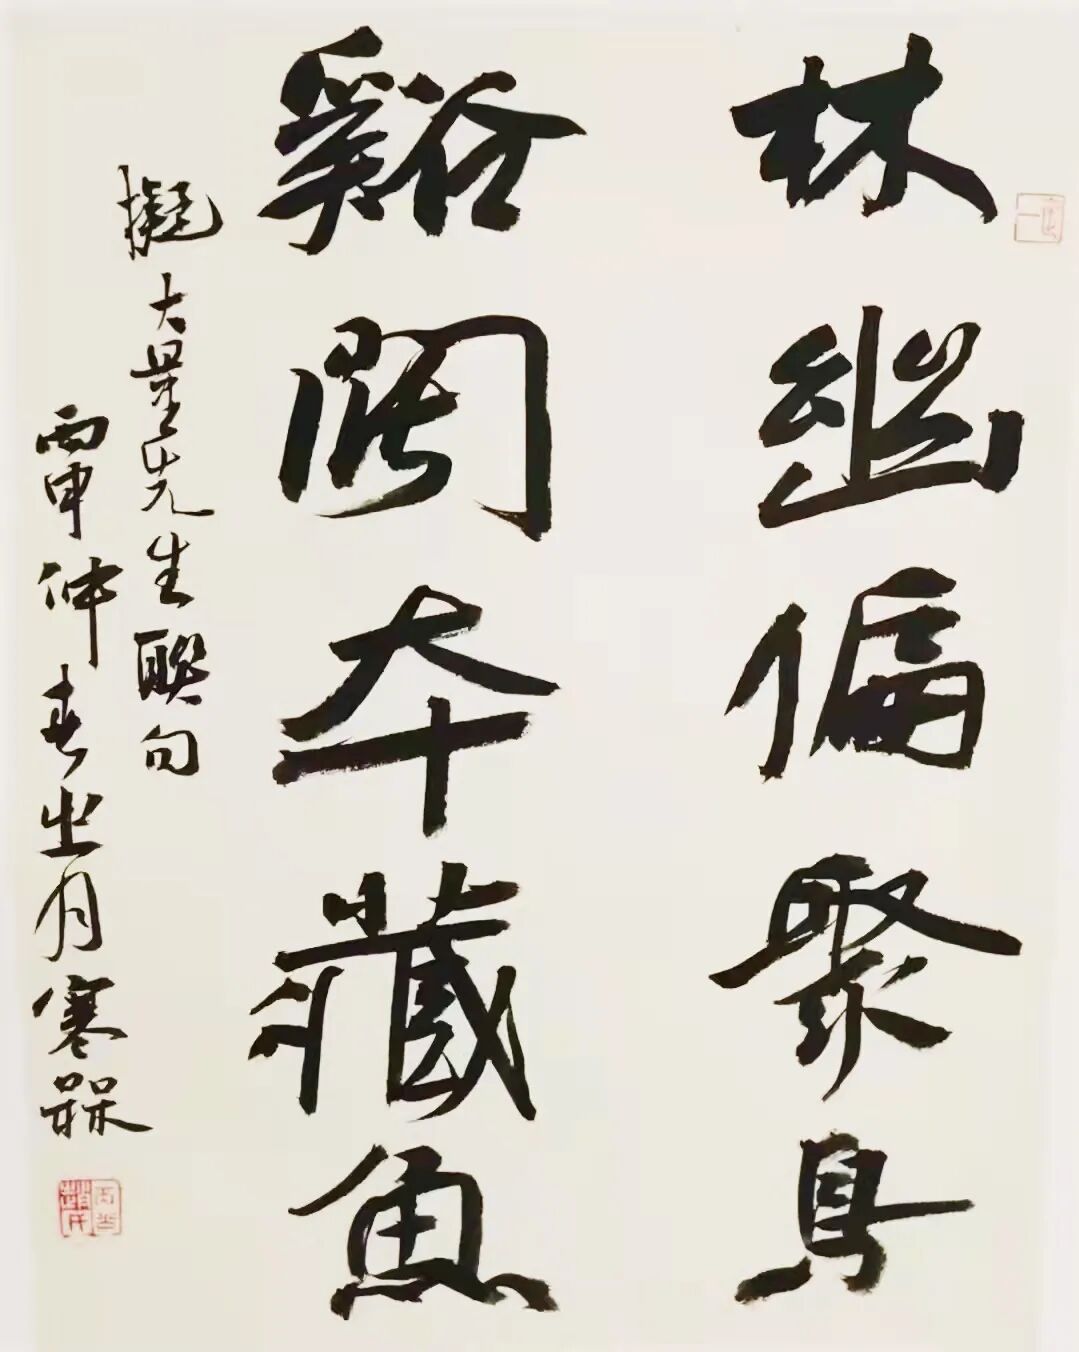 林幽偏聚鳥
谿闊本藏魚
擬大量先生聯句
丙申仲春之月寒